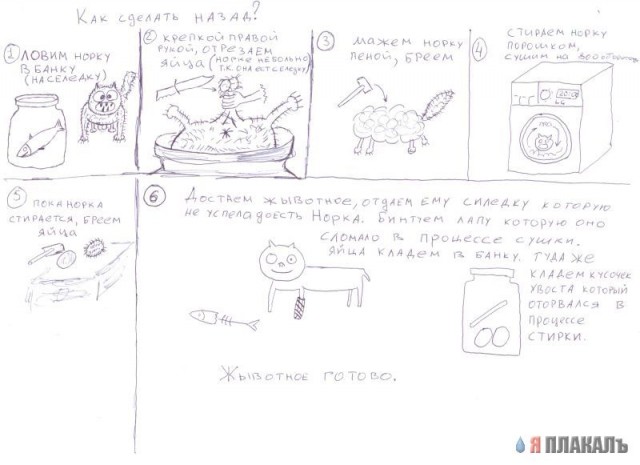 Как сделать назад?
① ЛОВИМ НОРКУ
В БАНКУ
(НА СЕЛЕДКУ)
② КРЕПКОЙ ПРАВОЙ
РУКОЙ, ОТРЕЗАЕМ
ЯЙЦА (НОРКЕ НЕБОЛЬНО
Т.К. ОНА ЕСТ СЕЛЕДКУ)
③ МАЖЕМ НОРКУ
ПЕНОЙ, БРЕЕМ
④ СТИРАЕМ НОРКУ
ПОРОШКОМ,
СУШИМ НА
LG
⑤ ПОКА НОРКА
СТИРАЕТСЯ, БРЕЕМ
ЯЙЦА
⑥ ДОСТАЕМ ЖЫВОТНОЕ, ОТДАЕМ ЕМУ СИЛЕДКУ КОТОРУЮ
НЕ УСПЕЛА ДОЕСТЬ НОРКА. БИНТУЕМ ЛАПУ КОТОРУЮ ОНО
СЛОМАЛО В ПРОЦЕССЕ СУШКИ.
ЯЙЦА КЛАДЕМ В БАНКУ. ТУДА ЖЕ
КЛАДЕМ КУСОЧЕК
ХВОСТА КОТОРЫЙ
ОТОРВАЛСЯ В
ПРОЦЕССЕ
СТИРКИ.
ЖЫВОТНОЕ ГОТОВО.
Я ПЛАКАЛЪ